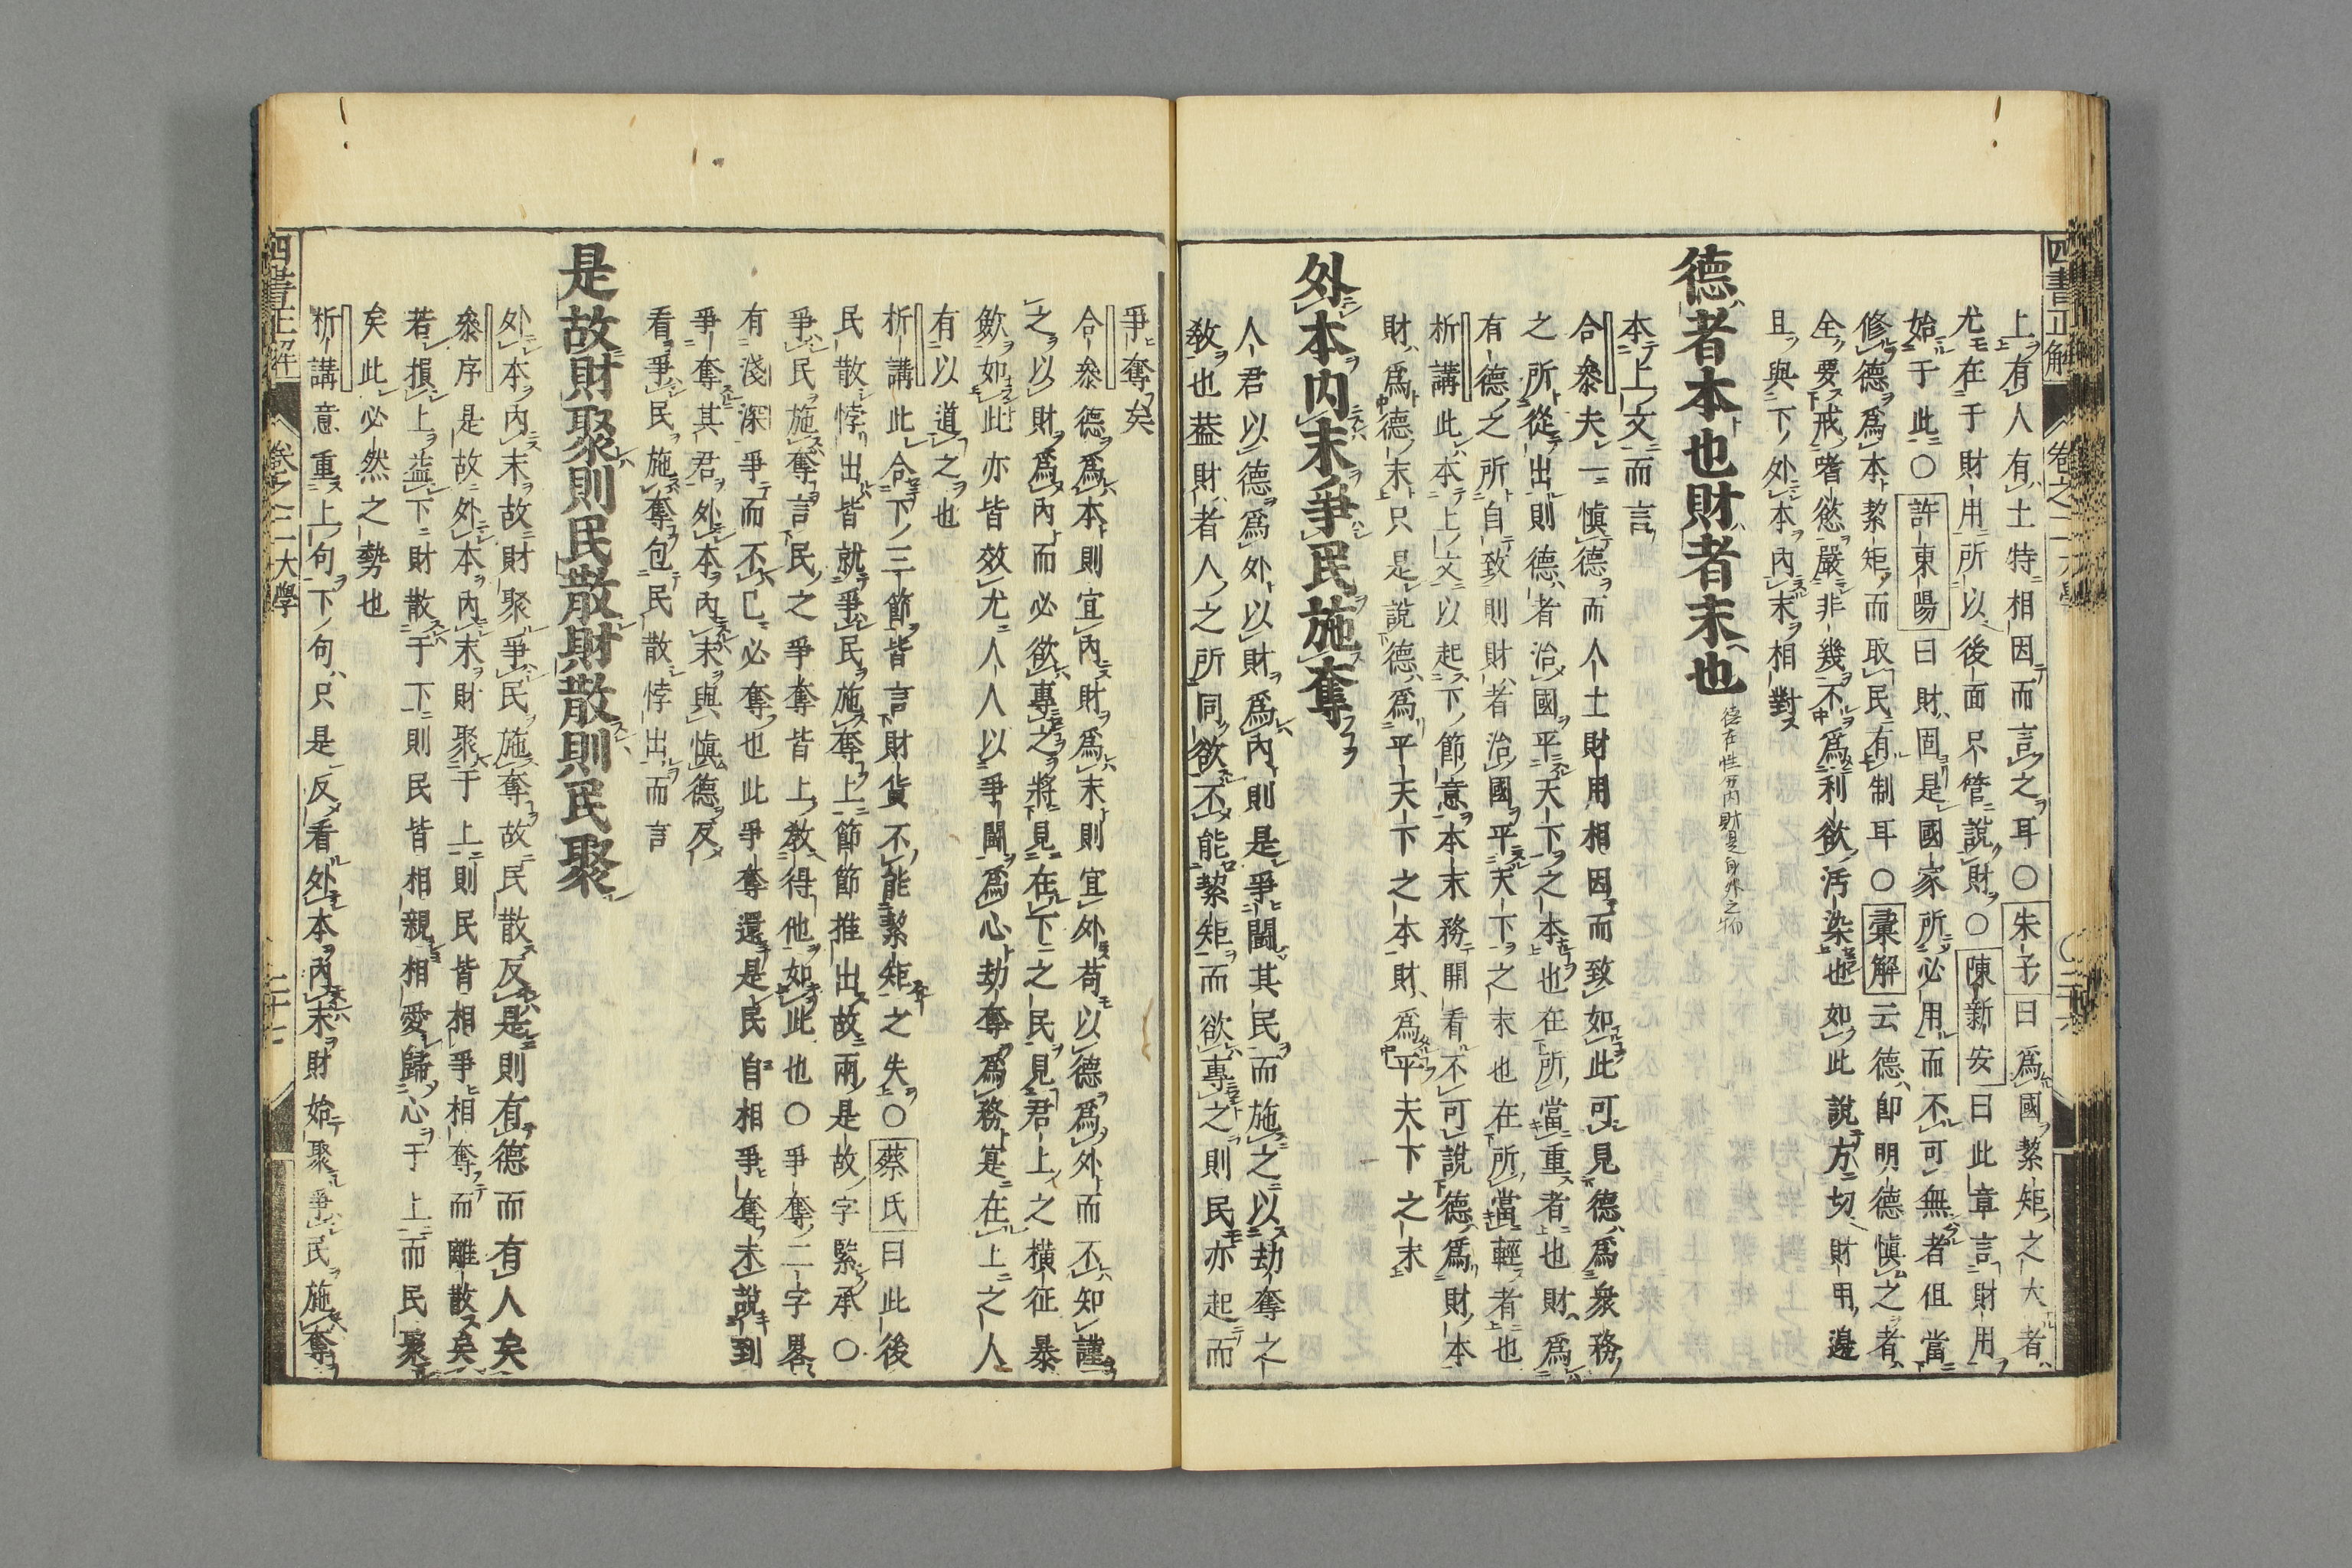 四書正解 卷之二 大學
上有人有土特相因而言之耳○朱子曰爲國絜矩之大者
尤在于財用所以後面只管說財○陳新安曰此章言財用
始于此○許東陽曰財固是國家所必用而不可無者但當
修德爲本絜矩而取民有制耳○彙解云德卽明德愼之者
全要戒嗜慾嚴非幾不爲利欲汚染也如此說方切財用邊
且與下外本內末相對
德者本也財者末也 德在性分內財是身外之物
本上文而言
合參夫一愼德而人土財用相因而致如此可見德爲衆務
之所從出則德者治國平天下之本也在所當重者也財爲
有德之所自致則財者治國平天下之末也在所當輕者也
析講此本上文以起下節意本末務開看不可說德爲財本
財爲德末只是說德爲平天下之本財爲平天下之末
外本內末爭民施奪
人君以德爲外以財爲內則是爭鬪其民而施之以劫奪之
敎也葢財者人之所同欲不能絜矩而欲專之則民亦起而
爭奪矣
合參德爲本則宜內財爲末則宜外苟以德爲外而不知謹
之以財爲內而必欲專之將見在下之民見君上之橫征暴
斂如此亦皆效尤人人以爭鬪爲心劫奪爲務寔在上之人
有以道之也
析講此合下三節皆言財貨不能絜矩之失○蔡氏曰此後
民散悖出皆就爭民施奪上節節推出故兩是故字緊承○
爭民施奪言民之爭奪皆上敎得他如此也○爭奪二字畧
有淺深爭而不已必奪也此爭奪還是民自相爭奪未說到
爭奪其君外本內末與愼德反
看爭民施奪包民散悖出而言
是故財聚則民散財散則民聚
外本內末故財聚爭民施奪故民散反是則有德而有人矣
參序是故外本內末財聚于上則民皆相爭相奪而離散矣
若損上益下財散于下則民皆相親相愛歸心于上而民聚
矣此必然之勢也
析講意重上句下句只是反看外本內末財始聚爭民施奪
四書正解 卷之二 大學 二十七